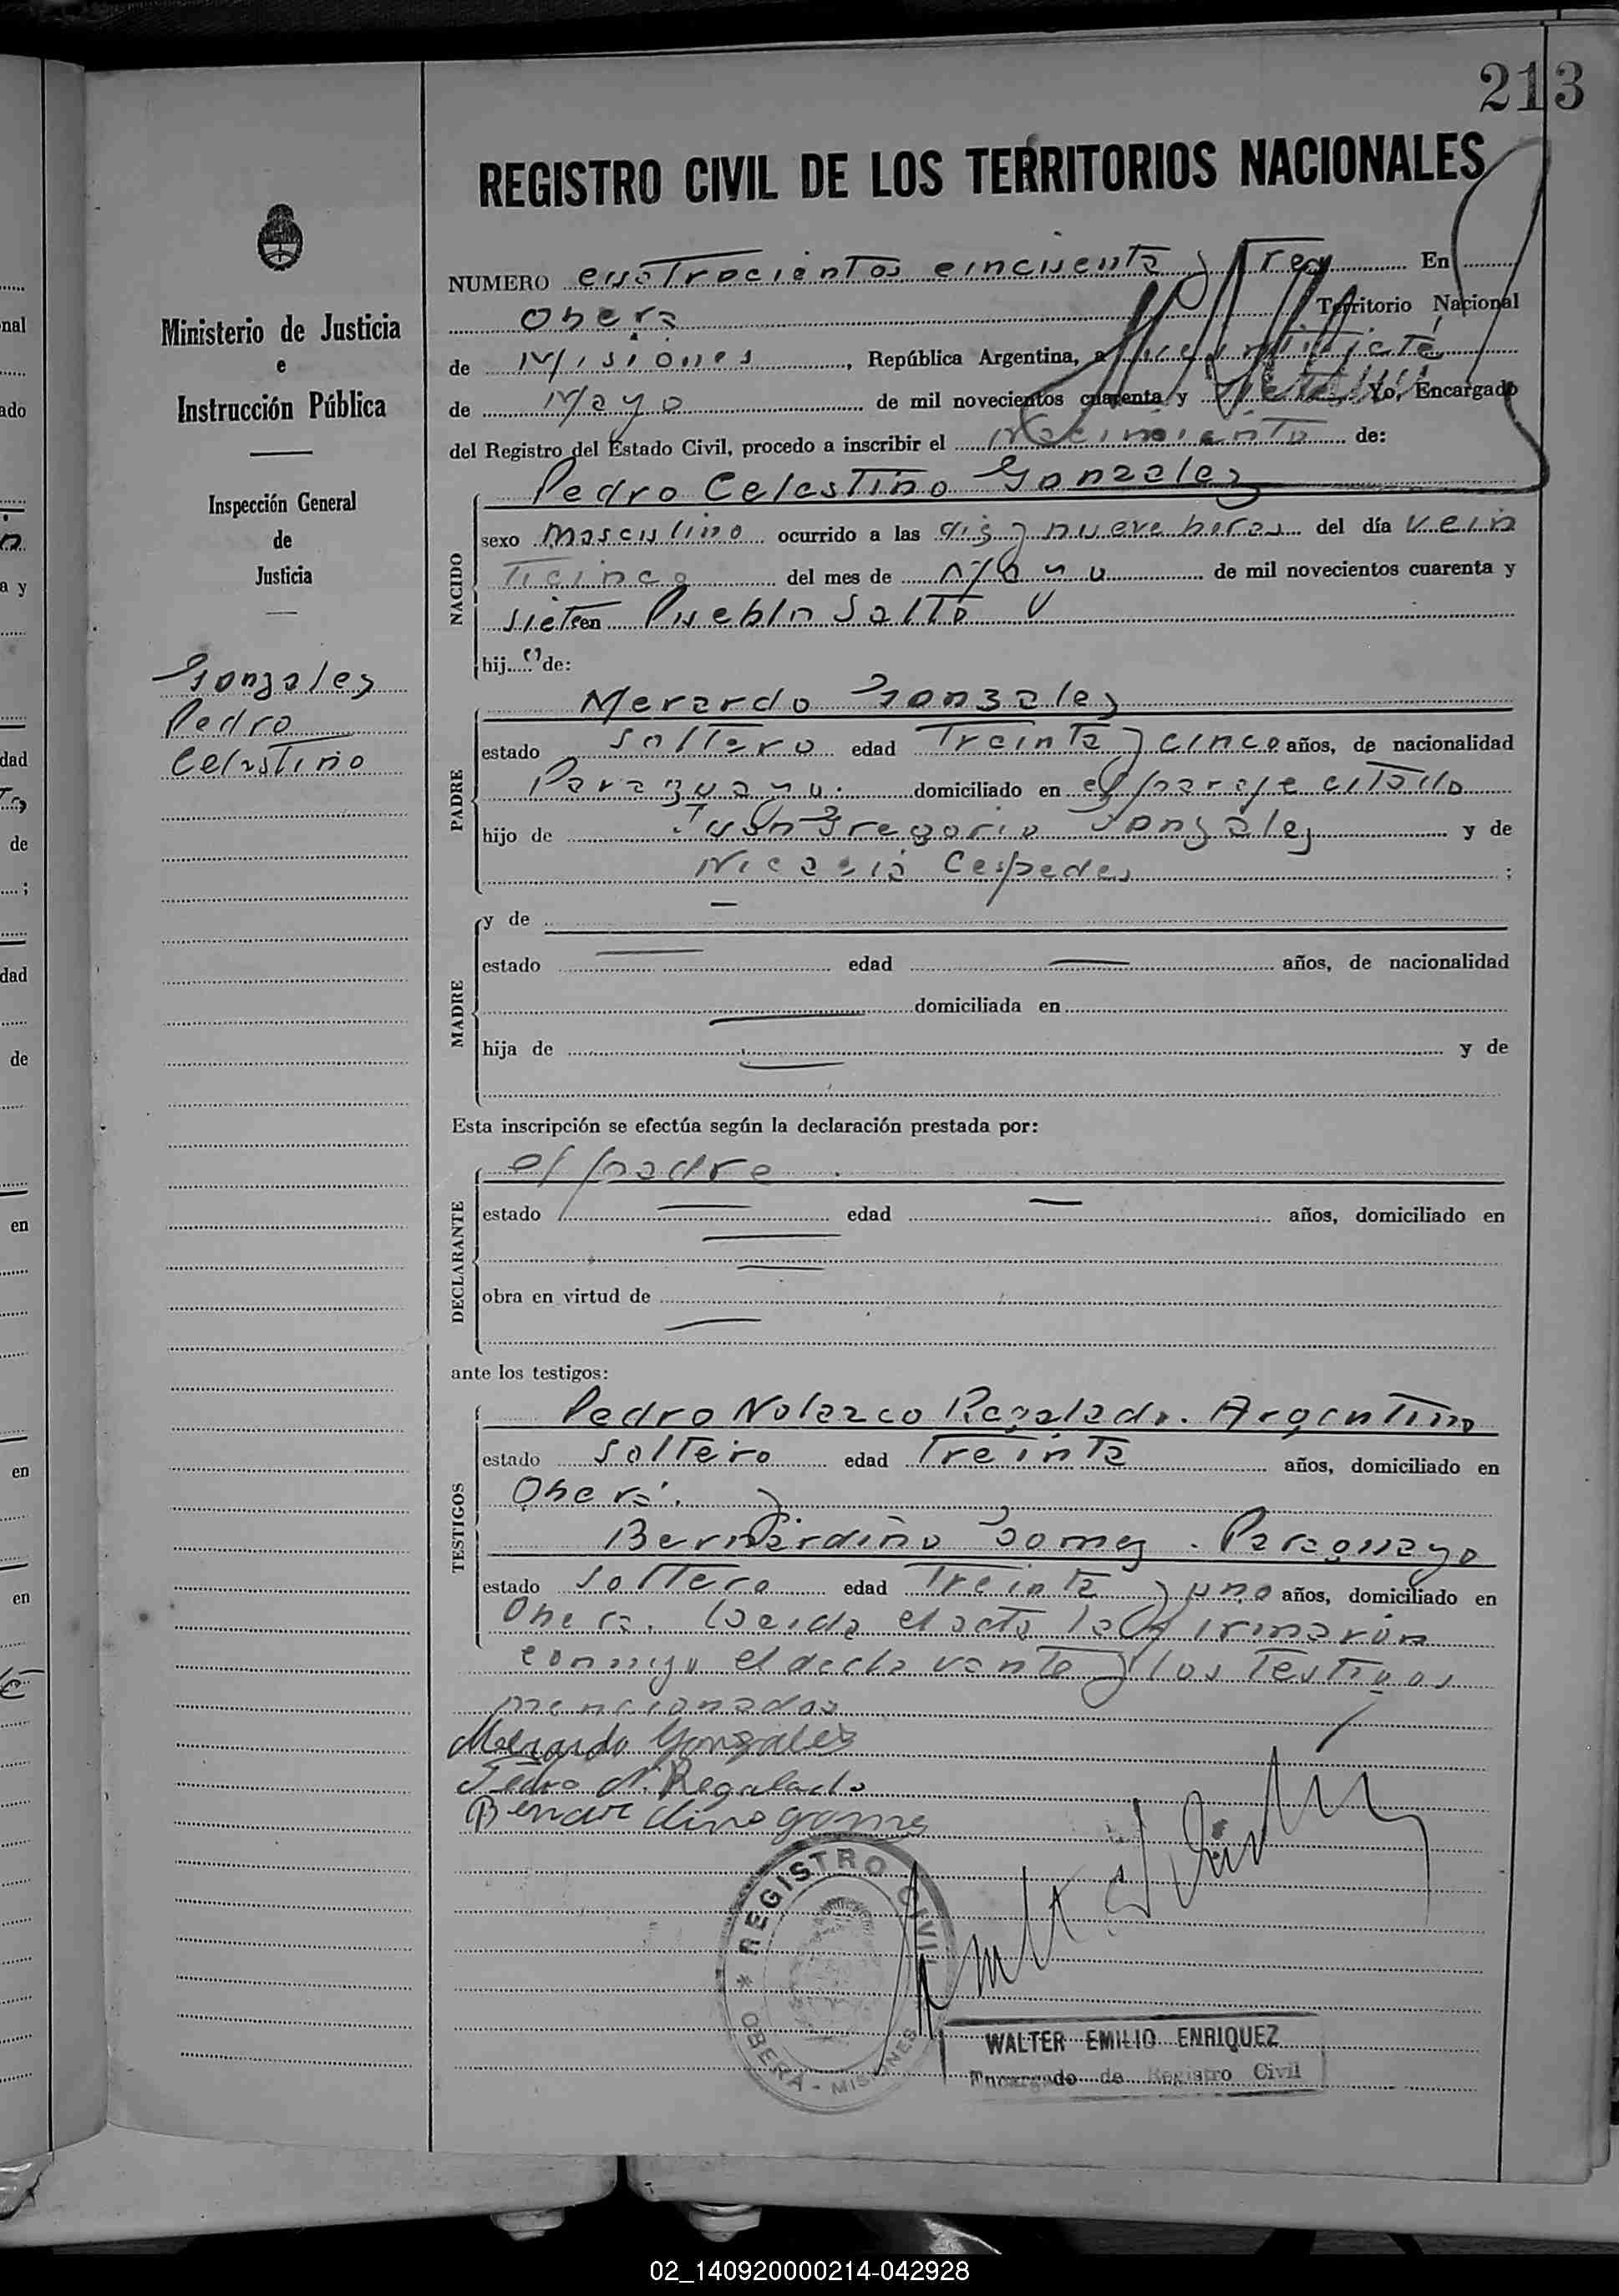 213
REGISTRO CIVIL DE LOS TERRITORIOS NACIONALES
Ministerio de Justicia
e
Instrucción Pública
Inspección General
de
Justicia
Gonzales
Pedro
Celestino
NUMERO cuatrocientos cincuenta y tres En
Obera Territorio Nacional
de Misiones, República Argentina, a veintisiete
de Mayo de mil novecientos cuarenta y siete Yo, Encargado
del Registro del Estado Civil, procedo a inscribir el nacimiento de:
NACIDO
Pedro Celestino Gonzales
sexo masculino ocurrido a las diez y nueve horas del día vein
ticinco del mes de Mayo de mil novecientos cuarenta y
siete en Pueblo Salto
hij o de:
PADRE
Merardo Gonzales
estado soltero edad treinta y cinco años, de nacionalidad
Paraguayo. domiciliado en el paraje citado
hijo de Juan Gregorio Gonzales y de
Nicasia Cespedes ;
MADRE
y de —
estado — edad — años, de nacionalidad
— domiciliada en
hija de — y de
Esta inscripción se efectúa según la declaración prestada por:
DECLARANTE
el padre
estado — edad — años, domiciliado en
obra en virtud de —
ante los testigos:
TESTIGOS
Pedro Nolazco Regalado. Argentino
estado solteiro edad treinta años, domiciliado en
Oberá. y
Bernardino Gomez. Paraguayo
estado soltero edad treinta y uno años, domiciliado en
Obera. Leida el acta la firmaron
conmigo el declarante y los testigos
mencionados
Merardo Gonzales
Pedro N. Regalado
Bernardino gomes
REGISTRO CIVIL
OBERA - MISIONES
WALTER EMILIO ENRIQUEZ
Encargado de Registro Civil
02_140920000214-042928